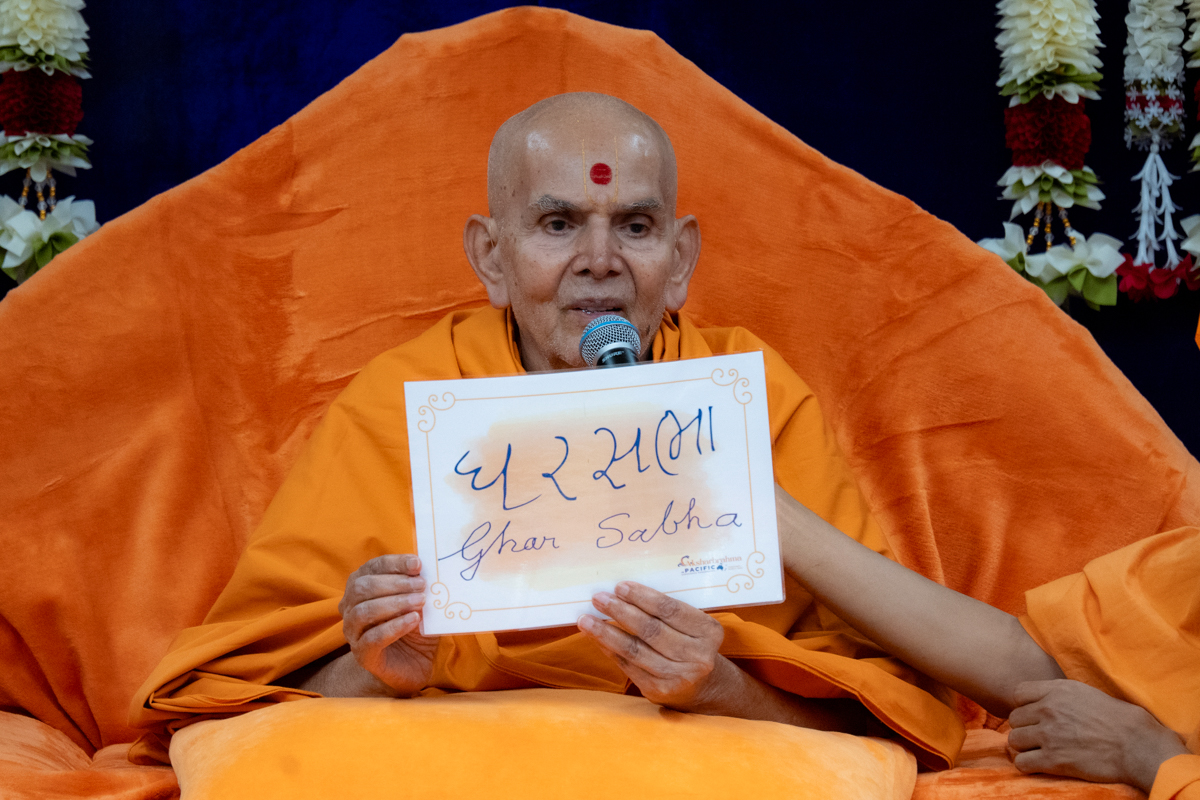 ઘરસભા
Ghar Sabha
PACIFIC